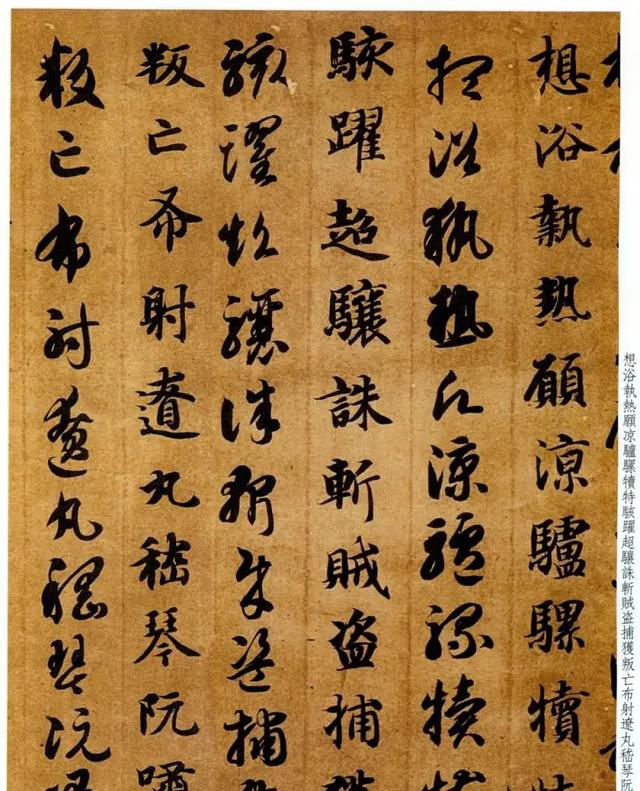 想浴執熱願涼驢騾犢
想浴執熱願涼驢騾犢
駭躍超驤誅斬賊盜捕
駭躍超驤誅斬賊盜捕
叛亡布射遼丸嵇琴阮嘯
叛亡布射遼丸嵇琴阮
想浴執熱願凉驢騾犢特駭躍超驤誅斬賊盗捕獲叛亡布射遼丸嵇琴阮